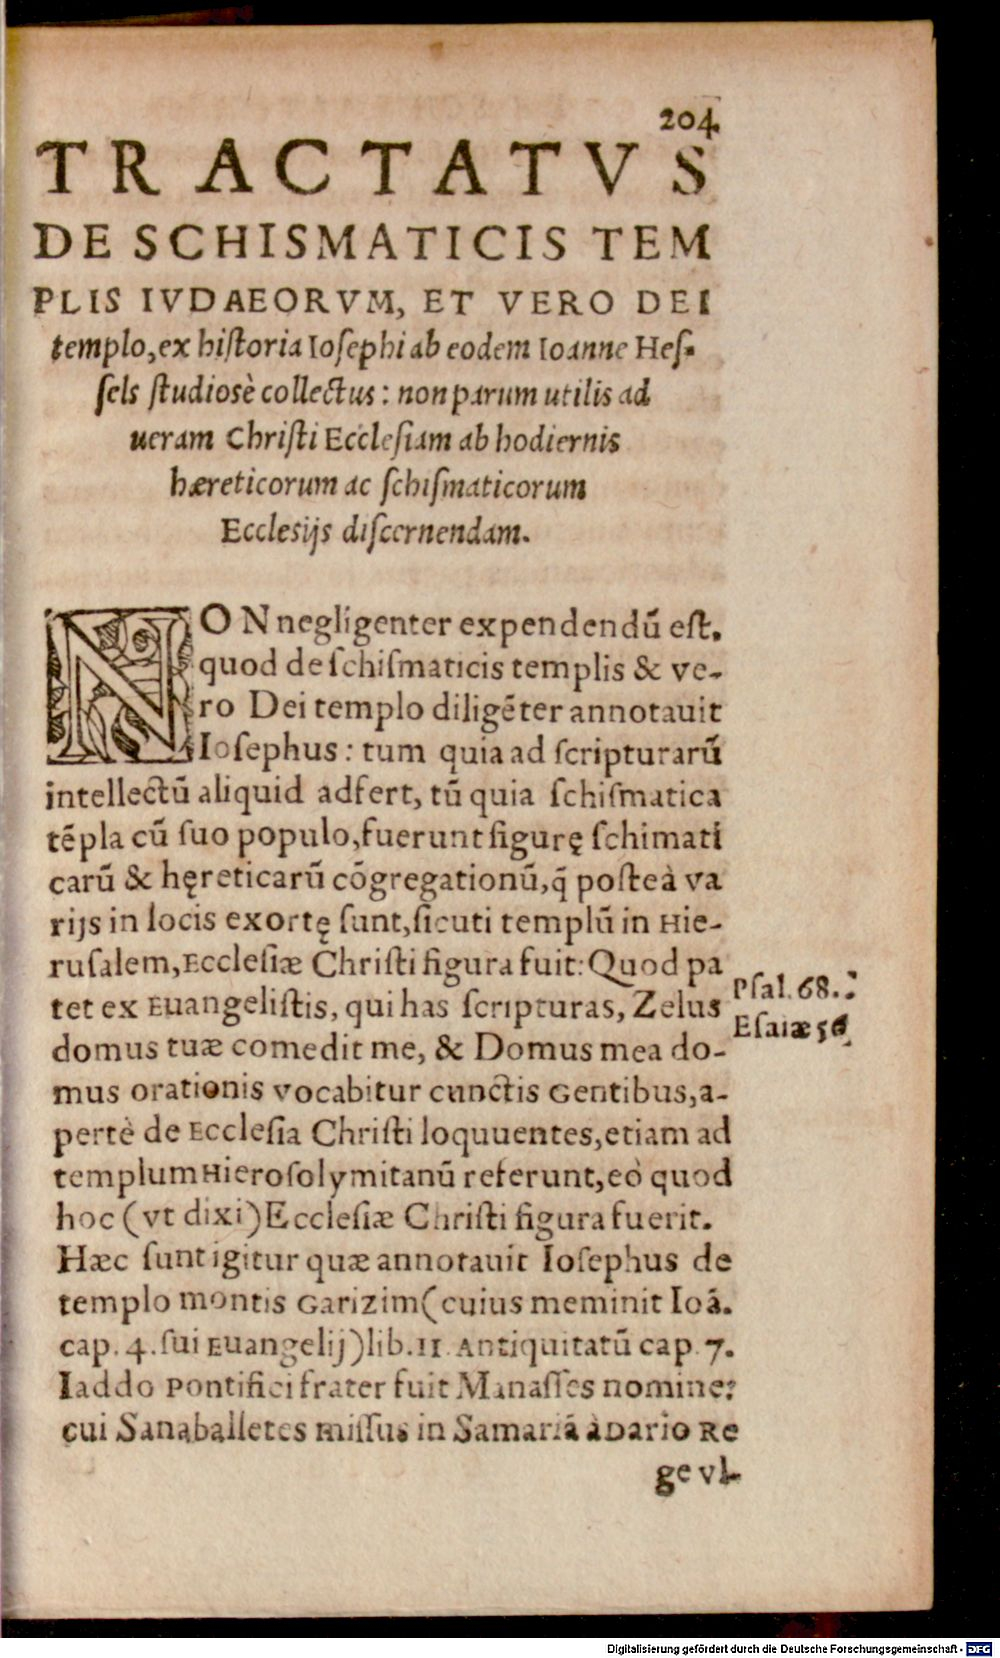 204
TRACTATVS
DE SCHISMATICIS TEM
PLIS IVDAEORVM, ET VERO DEI
templo, ex hiſtoria Ioſephi ab eodem Ioanne Heſ-
ſels ſtudiosè collectus: non parum utilis ad
ueram Chriſti Eccleſiam ab hodiernis
hæreticorum ac ſchiſmaticorum
Ecclesijs diſcernendam.
NON negligenter expendendū eſt,
quod de ſchiſmaticis templis & ve-
ro Dei templo diligēter annotauit
Ioſephus: tum quia ad ſcripturarū
intellectū aliquid adfert, tū quia ſchiſmatica
tēpla cū ſuo populo, fuerunt figurę ſchimati
carū & hęreticarū cōgregationū, q̄ poſteà va
rijs in locis exortę ſunt, ſicuti templū in Hie-
ruſalem, Eccleſiæ Chriſti figura fuit: Quod pa
tet ex Euangeliſtis, qui has ſcripturas, Zelus
domus tuæ comedit me, & Domus mea do-
mus orationis vocabitur cunctis Gentibus, a-
pertè de Eccleſia Chriſti loquuentes, etiam ad
templum Hieroſolymitanū referunt, eò quod
hoc (vt dixi) Eccleſiæ Chriſti figura fuerit.
Hæc ſunt igitur quæ annotauit Ioſephus de
templo montis Garizim (cuius meminit Ioā.
cap. 4. ſui Euangelij) lib. 11. Antiquitatū cap. 7.
Iaddo Pontifici frater fuit Manaſſes nomine:
cui Sanaballetes miſſus in Samariā à Dario Re
ge vl-
Pſal. 68.
Eſaiæ 56
Digitalisierung gefördert durch die Deutsche Forschungsgemeinschaft - DFG